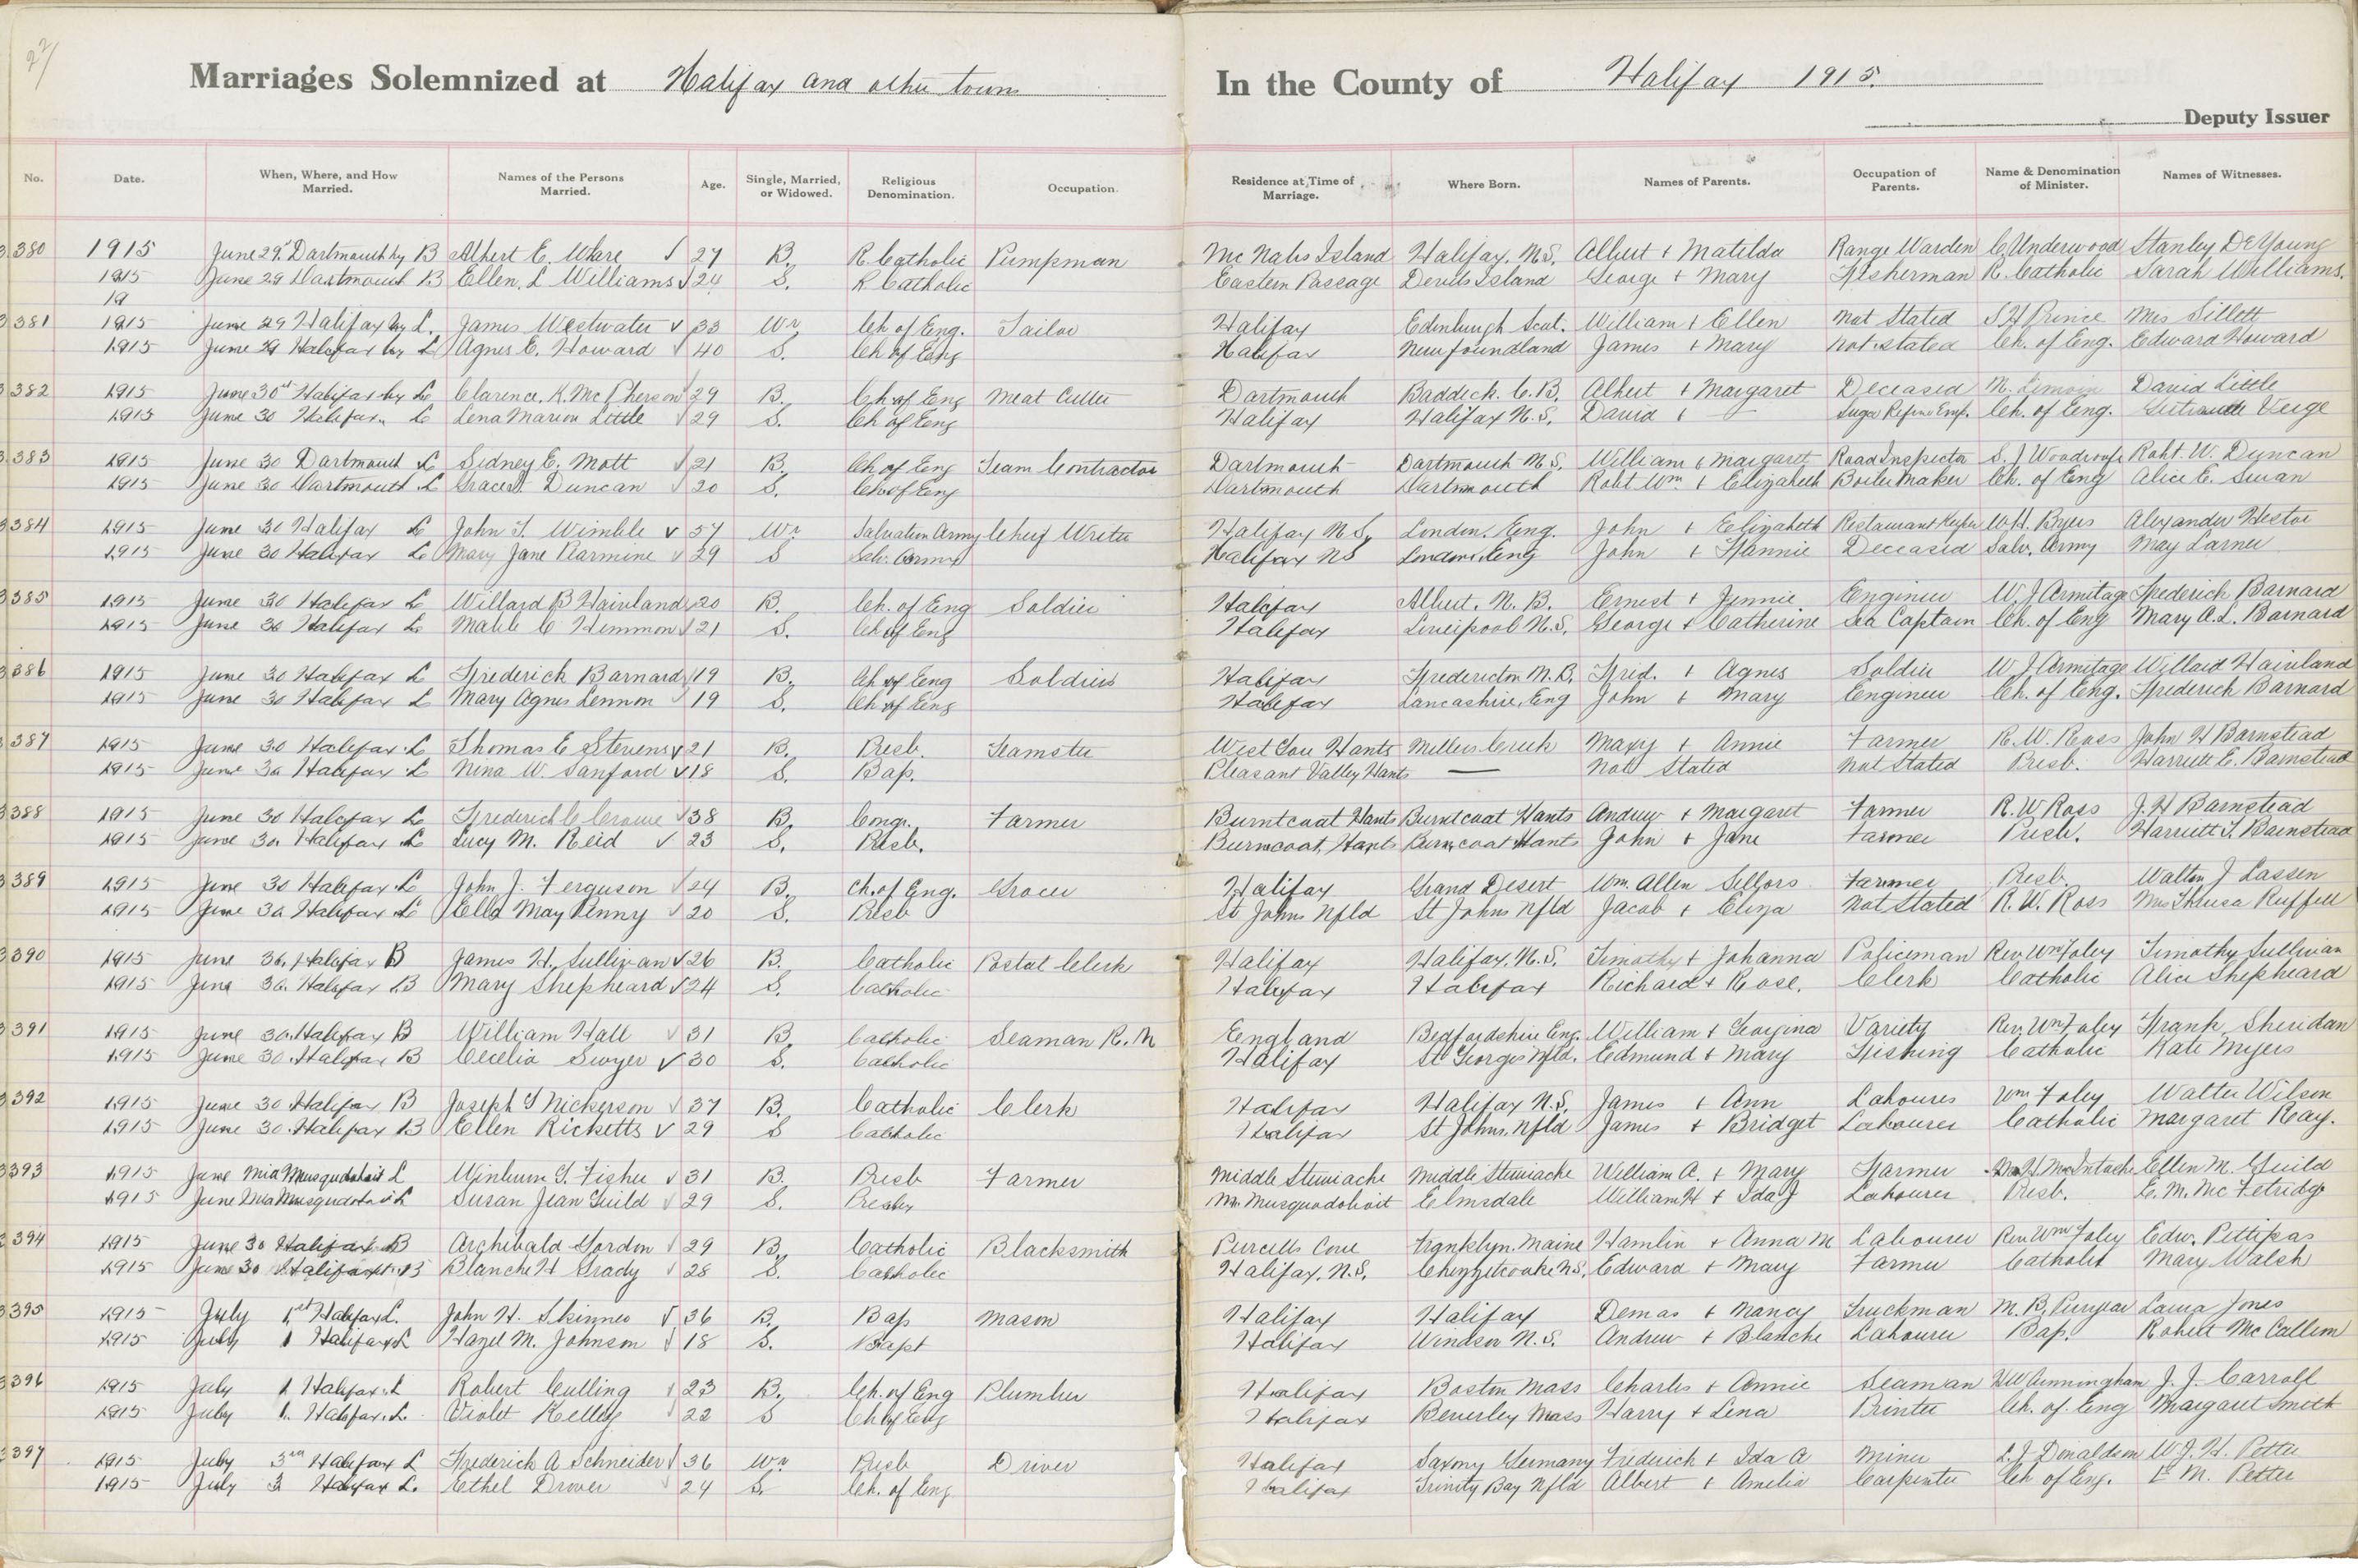 27
Marriages Solemnized at Halifax and other towns In the County of Halifax 1915.
Deputy Issuer
No. Date. When, Where, and How Married. Names of the Persons Married. Age. Single, Married, or Widowed. Religious Denomination. Occupation. Residence at Time of Marriage. Where Born. Names of Parents. Occupation of Parents. Name & Denomination of Minister. Names of Witnesses.
3380 1915 June 29 Dartmouth by B Albert E. Whare 27 B. R. Catholic Pumpman Mc Nabs Island Halifax, N.S. Albert + Matilda Range Warden C Underwood Stanley DeYoung
1915 June 29 Dartmouth B Ellen. L Williams 24 S. R Catholic Eastern Passage Devils Island George + Mary Fisherman R. Catholic Sarah Williams.
19
3381 1915 June 29 Halifax by L. James Westwater 33 Wr Ch of Eng. Tailor Halifax Edinburgh Scot. William + Ellen Not Stated S H Prince Mrs Sillett
1915 June 29 Halifax by L Agnes E. Howard 40 S. Ch of Eng Halifax Newfoundland James + Mary Not stated Ch. of Eng. Edward Howard
3382 1915 June 30 Halifax by L Clarence. K. Mc Pherson 29 B. Ch of Eng Meat Cutter Dartmouth Baddeck. C.B. Albert + Margaret Deceased N. David Little
1915 June 30 Halifax. L Lena Marion Little 29 S. Ch of Eng Halifax Halifax N.S. David + — Sugar Refine Emp. Ch. of Eng. Gertrude Veige
3383 1915 June 30 Dartmouth L Sidney E. Mott 21 B. Ch of Eng Team Contractor Dartmouth Dartmouth N.S. William + Margaret Road Inspector S. J Woodroofe Robt. W. Duncan
1915 June 30 Dartmouth L Grace Duncan 20 S. Ch of Eng Dartmouth Dartmouth Robt Wm. + Elizabeth Boiler Maker Ch. of Eng Alice E. Swan
3384 1915 June 30 Halifax L John T. Wimble 57 Wr Salvation Army Cheif Writer Halifax N S. London. Eng. John + Elizabeth Restaurant Keeper W.H. Byers Alexander Hector
1915 June 30 Halifax L Mary Jane Karmine 29 S Salv. Army Halifax NS London, Eng John + Fannie Deceased Salv. Army May Larner
3385 1915 June 30 Halifax L Willard B Haviland 20 B. Ch. of Eng Soldier Halifax Albert. N. B. Ernest + Jennie Engineer W. J Armitage Frederick Barnard
1915 June 30 Halifax L Mable C Hemmon 21 S. Ch of Eng Halifax Liverpool N.S. George + Catherine Sea Captain Ch. of Eng Mary A.L. Barnard
3386 1915 June 30 Halifax L Frederick Barnard 19 B. Ch of Eng Soldier Halifax Fredericton N.B. Fred. + Agnes Soldier W. J Armitage Willard Haviland
1915 June 30 Halifax L Mary Agnes Lennon 19 S. Ch of Eng Halifax Lancashire, Eng John + Mary Engineer Ch. of Eng. Frederick Barnard
3387 1915 June 30 Halifax L Thomas E Stevens 21 B. Presb. Teamster West Gore Hants Millers Creek Maxy + Annie Farmer R. W. Ross John H Barnstead
1915 June 30 Halifax L Nina W. Sanford 18 S. Bap. Pleasant Valley Hants — Not Stated Not Stated Presb. Harriett E. Barnstead
3388 1915 June 30 Halifax L Frederick C Crowe 38 B. Congr. Farmer Burntcoat Hants Burntcoat Hants Andrew + Margaret Farmer R. W Ross J. H Barnstead
1915 June 30. Halifax L Lucy M. Reid 23 S. Presb. Burncoat, Hants Burncoat Hants John + Jane Farmer Presb. Harriett T. Barnstead
3389 1915 June 30 Halifax L John J. Ferguson 24 B. Ch. of Eng. Grocer Halifax Grand Desert Wm. Allen Sellors Farmer Presb. Walton J Lassen
1915 June 30 Halifax L Ella May Penny 20 S. Presb St Johns Nfld St Johns Nfld Jacob + Eliza Not Stated R. W. Ross Mrs Theresa Ruffell
3390 1915 June 30. Halifax B James H. Sullivan 26 B. Catholic Postal Clerk Halifax Halifax. N.S. Timothy + Johanna Policeman Rev Wm Foley Timothy Sullivan
1915 June 30. Halifax B Mary Shepheard 24 S. Catholic Halifax Halifax Richard + Rose. Clerk Catholic Alice Shepheard
3391 1915 June 30. Halifax B William Hall 31 B. Catholic Seaman R. N England Bedfordshire Eng. William + Georgina Variety Rev. Wm Foley Frank Sheridan
1915 June 30. Halifax B Cecelia Swyer 30 S. Catholic Halifax St Georges Nfld. Edmund + Mary Fishing Catholic Kate Myers
3392 1915 June 30 Halifax B Joseph T Nickerson 37 B. Catholic Clerk Halifax Halifax N.S. James + Ann Labourer Wm Foley Walter Wilson
1915 June 30. Halifax B Ellen Ricketts 29 S Catholic Halifax St Johns. Nfld James + Bridget Labourer Catholic Margaret Reay.
3393 1915 June Mid Musquodoboit L Winburn G. Fisher 31 B. Presb Farmer Middle Stewiacke Middle Stewiacke William A. + Mary Farmer McIntoshe Ellen M. Guild
1915 June Mid Musquodoboit L Susan Jean Guild 29 S. Presby M. Musquodoboit Elmsdale William H + Ida J Labourer Presb. E. M. Mc Fetridge
3394 1915 June 30 Halifax B Archibald Gordon 29 B. Catholic Blacksmith Purcells Cove Franklyn. Maine Hamlin + Anna M Labourer Rev Wm Foley Edw. Pettipas
1915 June 30 Halifax B Blanche H Grady 28 S. Catholic Halifax, N.S. Chezzetcooke NS. Edward + Mary Farmer Catholic Mary Walsh
3395 1915 July 1st Halifax L. John H. Skinner 36 B. Bap Mason Halifax Halifax Demas + Nancy Truckman M. B. Puryear Laura Jones
1915 July 1 Halifax L Hazel M. Johnson 18 S. Bapt Halifax Windsor N.S. Andrew + Blanche Labourer Bap. Robert Mc Callim
3396 1915 July 1 Halifax L Robert Culling 23 B. Ch. of Eng Plumber Halifax Boston Mass Charles + Annie Seaman H W Cunningham J. J. Carroll
1915 July 1. Halifax. L. Violet Kelley 22 S Ch of Eng Halifax Beverley Mass Harry + Lena Printer Ch. of Eng Margaret Smith
3397 1915 July 3rd Halifax L Frederick A Schneider 36 Wr Presb Driver Halifax Saxony Germany Frederick + Ida A Miner L. J Donaldson W. J. H. Petter
1915 July 3 Halifax L. Ethel Drover 24 S. Ch. of Eng Halifax Trinity Bay Nfld Albert + Amelia Carpenter Ch of Eng. E M. Petter